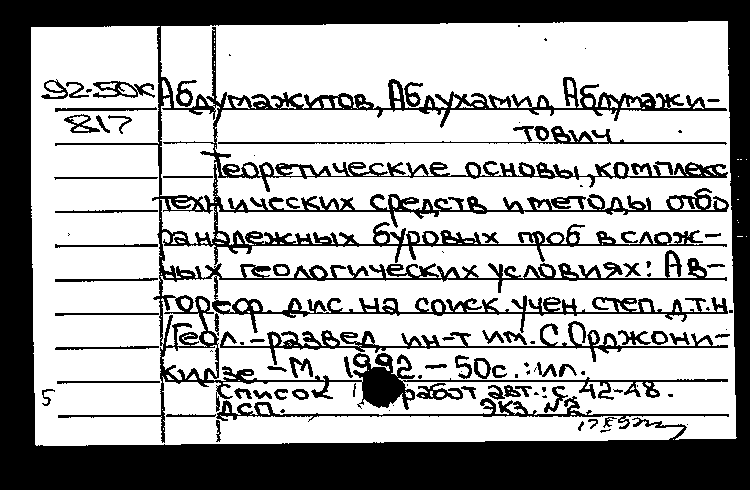 92-50к Абдумажитов, Абдухамид Абдумажи-
817
тович.
Теоретические основы, комплекс
технических средств и методы отбо
ра надежных буровых проб в слож-
ных геологических условиях: Ав-
тореф. дис. на соиск. учен. степ. д.т.н.
/Геол.-развед. ин-т им. С. Орджони-
кидзе. - М., 1992. - 50с. : ил.
Список работ авт.: с. 42-48.
5
ДСП. Экз. №2.